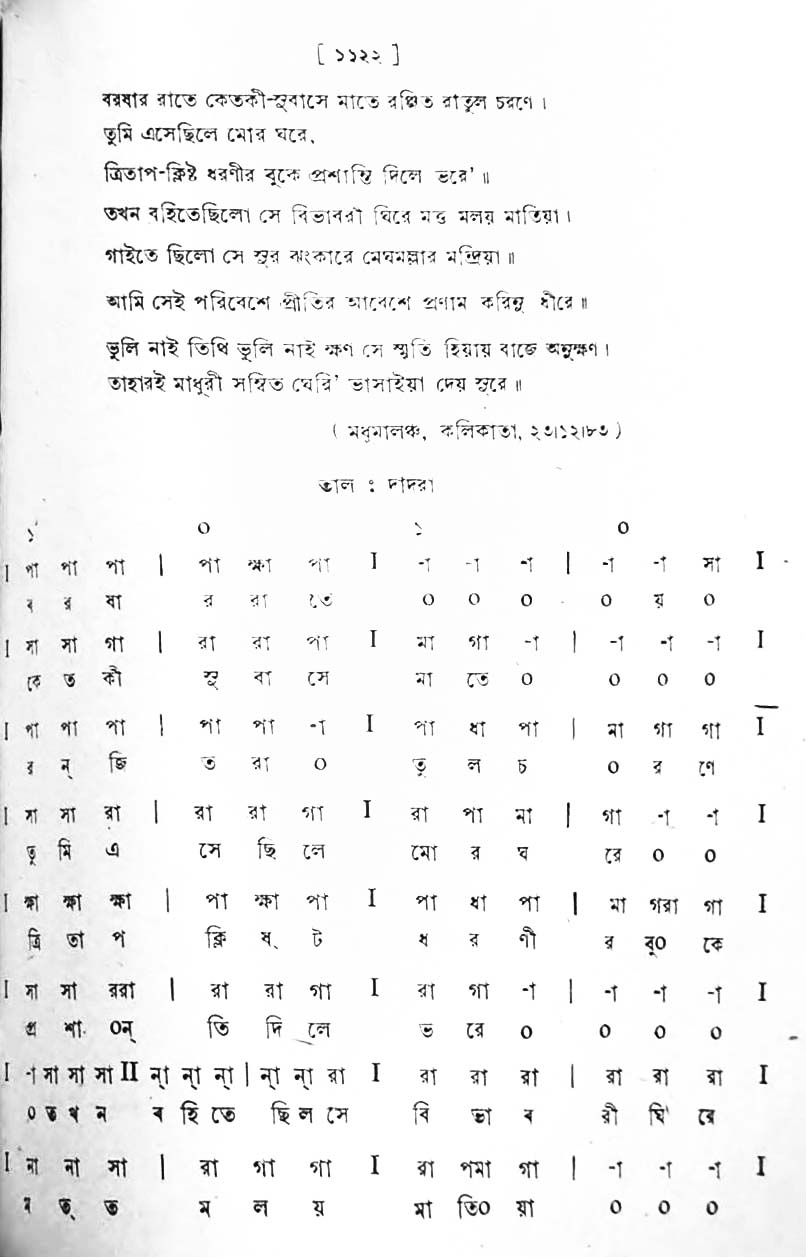 [ ১১২২ ]
বরষার রাতে কেতকী-সুবাসে মাতে রঞ্জিত রাতুল চরণে ।
তুমি এসেছিলে মোর ঘরে,
ত্রিতাপ-ক্লিষ্ট ধরণীর বুকে প্রশান্তি দিলে ভরে' ॥
তখন বহিতেছিলো সে বিভাবরী ঘিরে মত্ত মলয় মাতিয়া ।
গাইতে ছিলো সে সুর ঝংকারে মেঘমল্লার মন্দ্রিয়া ॥
আমি সেই পরিবেশে প্রীতির আবেশে প্রণাম করিনু ধীরে ॥
ভুলি নাই তিথি ভুলি নাই ক্ষণ সে স্মৃতি হিয়ায় বাজে অনুক্ষণ ।
তাহারই মাধুরী সম্বিত ঘেরি' ভাসাইয়া দেয় সুরে ॥
( মধুমালঞ্চ, কলিকাতা, ২৩।১২।৮৩ )
তাল : দাদরা
১ ০ ১ ০
I পা পা পা | পা ক্ষা পা I -া -া -া | -া -া সা I
ব র ষা র রা তে ০ ০ ০ ০ য় ০
I সা সা গা | রা রা পা I মা গা -া | -া -া -া I
কে ত কী সু বা সে মা তে ০ ০ ০ ০
I পা পা পা | পা পা -া I পা ধা পা | মা গা গা I
র ন্ জি ত রা ০ তু ল চ ০ র ণে
I সা সা রা | রা রা গা I রা পা মা | গা -া -া I
তু মি এ সে ছি লে মো র ঘ রে ০ ০
I ক্ষা ক্ষা ক্ষা | পা ক্ষা পা I পা ধা পা | মা গরা গা I
ত্রি তা প ক্লি ষ্ ট ধ র ণী র বু০ কে
I সা সা ররা | রা রা গা I রা গা -া | -া -া -া I
প্র শা ০ন্ তি দি লে ভ রে ০ ০ ০ ০
I -া সা সা সা II ন্া ন্া ন্া | ন্া ন্া রা I রা রা রা | রা রা রা I
০ ত খ ন ব হি তে ছি ল সে বি ভা ব রী ঘি রে
I না না সা | রা গা গা I রা পমা গা | -া -া -া I
ম ত্ ত ম ল য় মা তি০ য়া ০ ০ ০